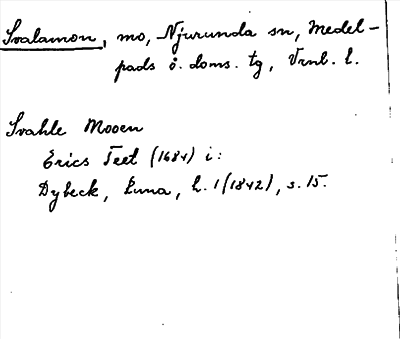 Svalamon, mo, Njurunda sn, Medel-
pads ö. doms. tg, Vrnl. l.
Svahle Mooen
Erics Teet (1684) i:
Dybeck, Runa, h. 1 (1842), s. 15.